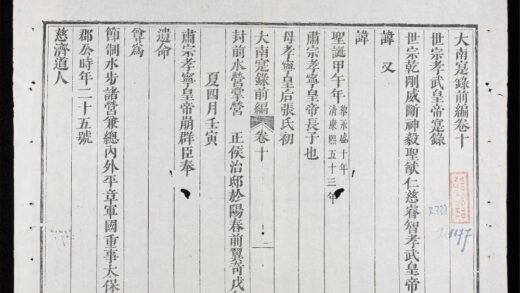 大南寔錄前編卷十
世宗孝武皇帝寔錄
世宗乾剛威斷神毅聖猷仁慈睿智孝武皇帝
諱 又
諱
聖誕甲午年 黎永盛十年 清康熙五十三年
肅宗孝寧皇帝長子也
母孝寧皇后張氏初
大南寔錄前編 卷十 一
封前水營掌營 正侯治邸於陽春前翼奇戊
夏四月壬寅
肅宗孝寧皇帝崩群臣奉
遺命
尊為
節制水步諸營兼總內外平章軍國重事太保
郡公時年二十五號
慈濟道人
1177